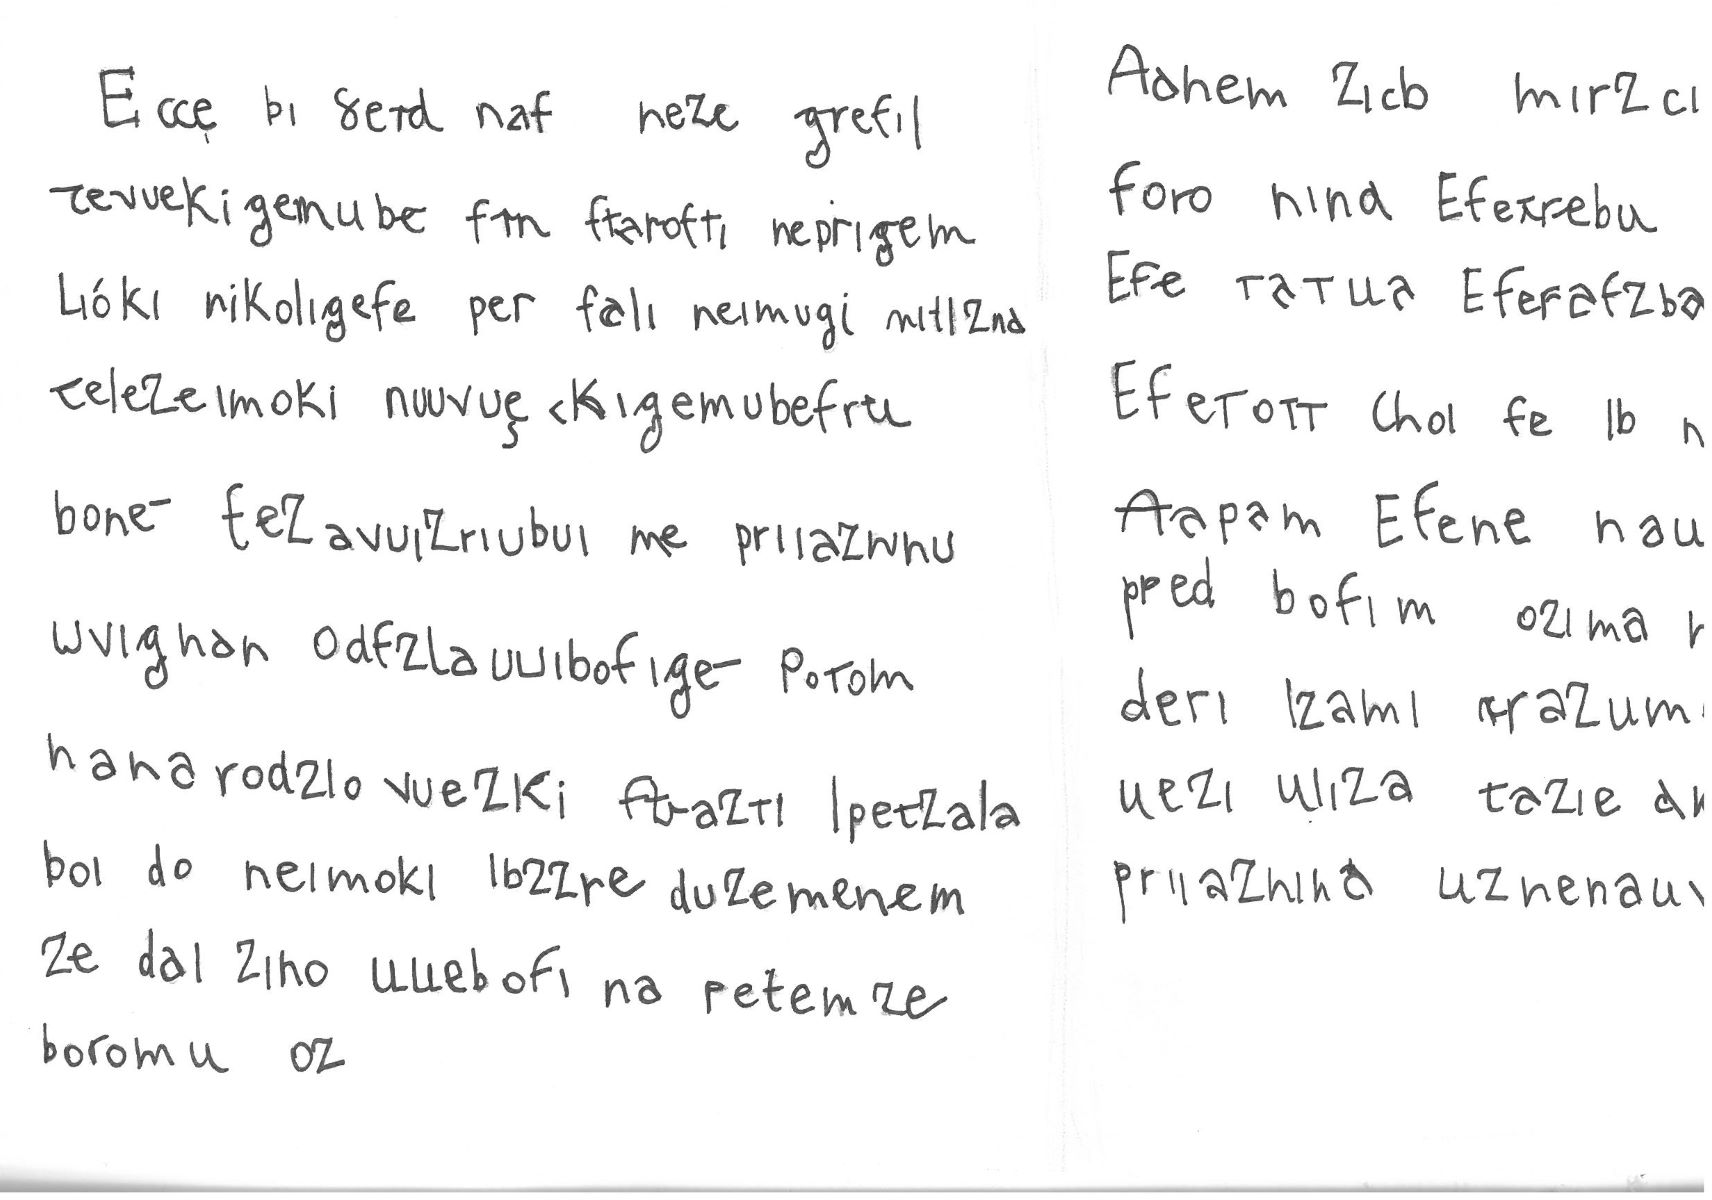 Ecce bi serd naf neze grefil
tevuekigemube fm ftarofti neprigem
Lióki nikoligefe per fali neimugi mitlzna
telezeimoki nuuvuę ckigemubefru
bone- tezavuizriubui me priiaznnu
uvighan odfzlauuibofige- Potom
hanarodzlo vuezki ftrazti Ipetzala
boi do neimoki Ibzzre duzemenem
ze dal ziho uuebofi na petemze
boromu oz
Adhem zicb mirzci
foro nind Efexrebu
Efe tatua Eferafzba
Efetott Chol fe Ib n
Aapam Efene nau
pred bofim ozima
deri Izami razum
uezi uliza tazie
priiaznina uznenau